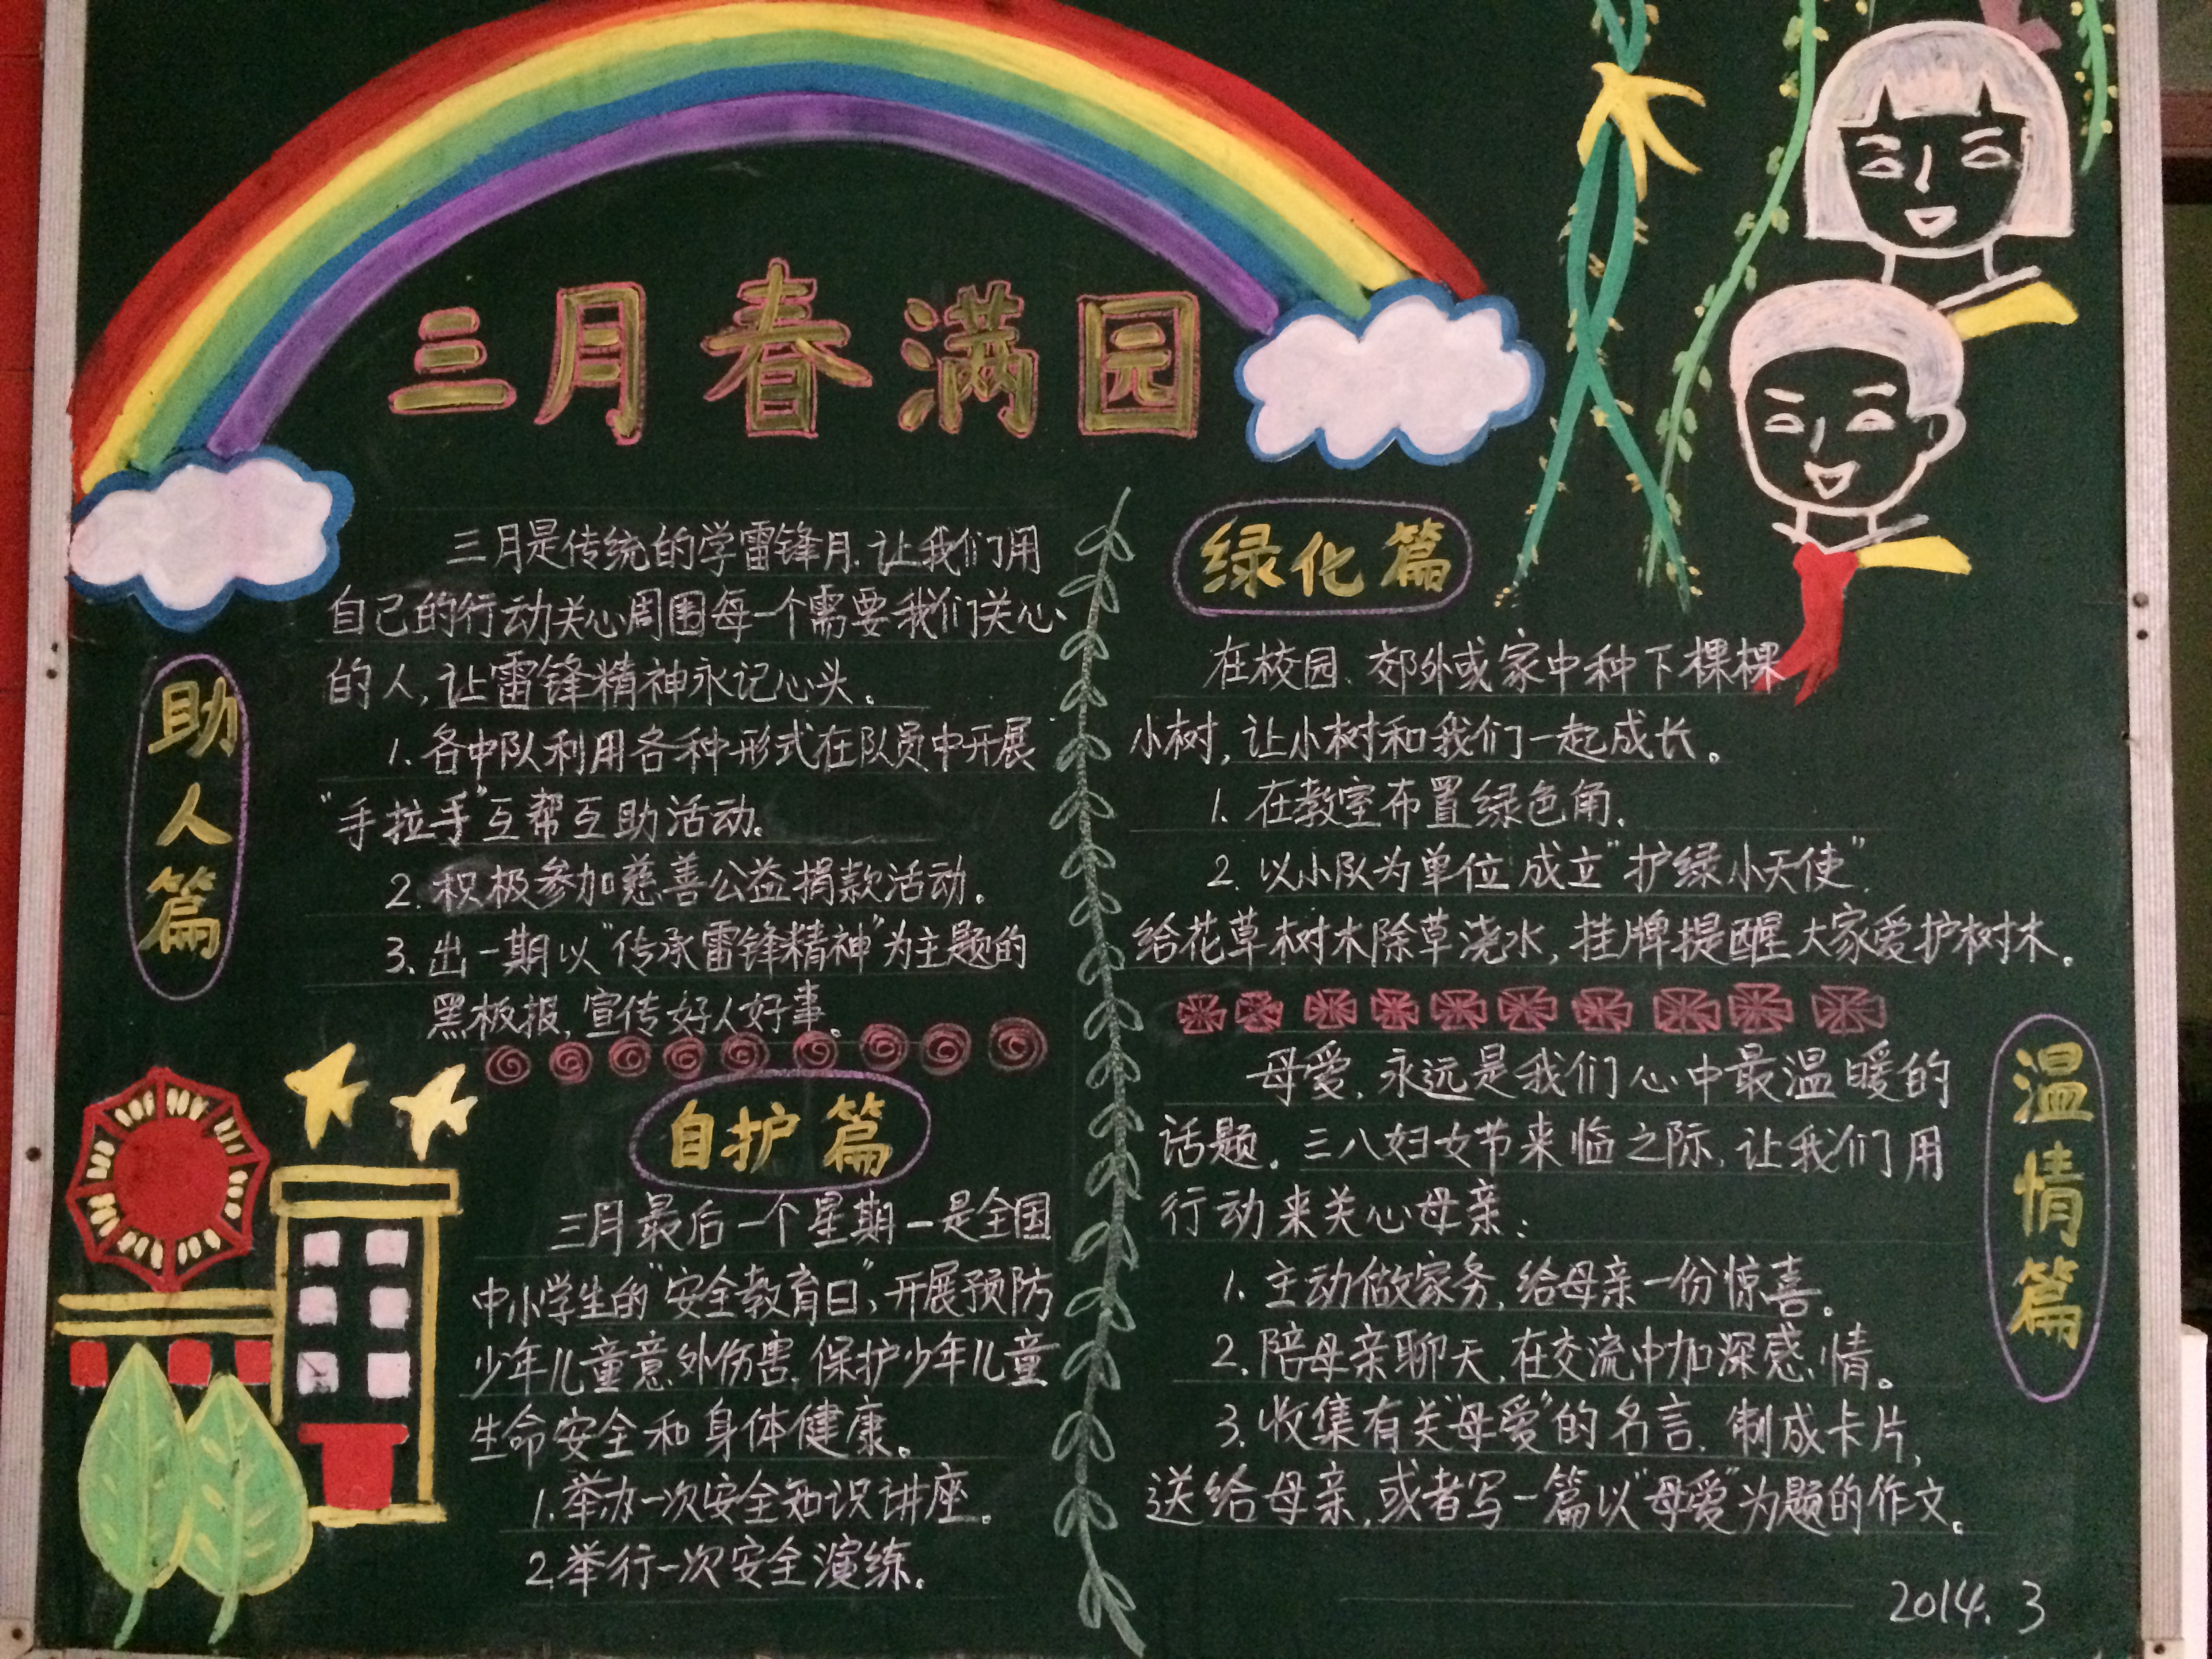 三月春满园
助人篇
三月是传统的学雷锋月.让我们用
自己的行动关心周围每一个需要我们关心
的人,让雷锋精神永记心头。
1.各中队利用各种形式在队员中开展
“手拉手”互帮互助活动.
2.积极参加慈善公益捐款活动。
3.出一期以“传承雷锋精神”为主题的
黑板报,宣传好人好事。
自护篇
三月最后一个星期一是全国
中小学生的“安全教育日”,开展预防
少年儿童意外伤害.保护少年儿童
生命安全和身体健康。
1.举办一次安全知识讲座。
2.举行一次安全演练。
绿化篇
在校园、郊外或家中种下棵棵
小树,让小树和我们一起成长。
1.在教室布置绿色角.
2.以小队为单位成立“护绿小天使”.
给花草树木除草浇水,挂牌提醒大家爱护树木。
温情篇
母爱,永远是我们心中最温暖的
话题。三八妇女节来临之际,让我们用
行动来关心母亲:
1.主动做家务,给母亲一份惊喜。
2.陪母亲聊天,在交流中加深感情。
3.收集有关“母爱”的名言.制成卡片,
送给母亲,或者写一篇以“母爱”为题的作文。
2014.3